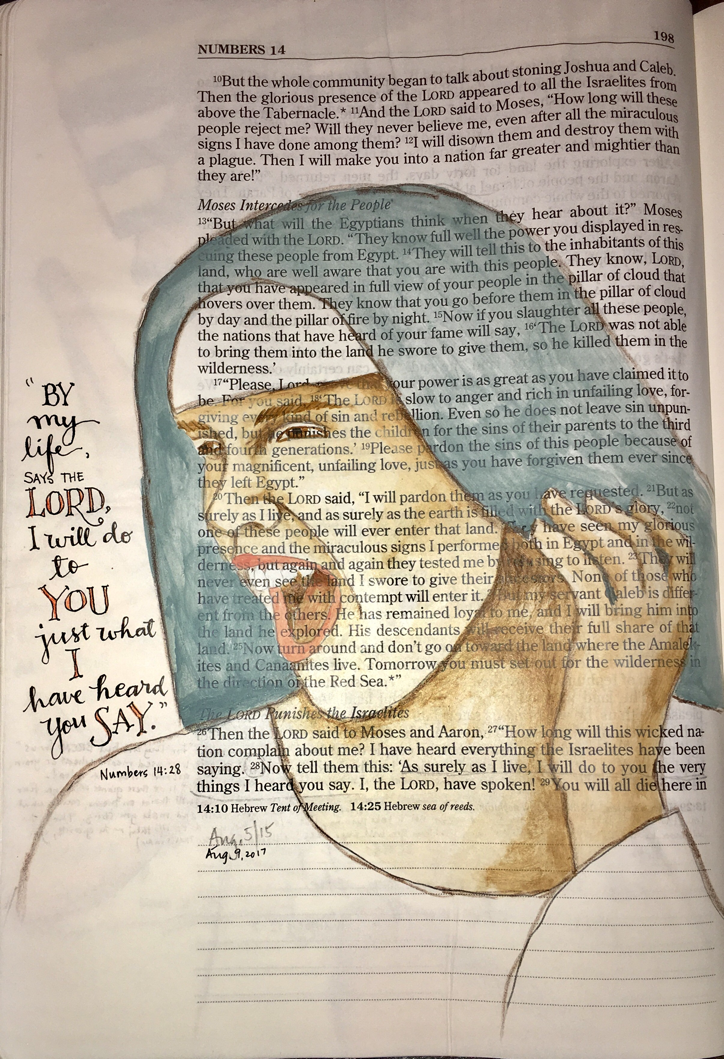 NUMBERS 14
198
¹⁰But the whole community began to talk about stoning Joshua and Caleb.
Then the glorious presence of the LORD appeared to all the Israelites from
above the Tabernacle.* ¹¹And the LORD said to Moses, “How long will these
people reject me? Will they never believe me, even after all the miraculous
signs I have done among them? ¹²I will disown them and destroy them with
a plague. Then I will make you into a nation far greater and mightier than
they are!”
Moses Intercedes for the People
¹³“But what will the Egyptians think when they hear about it?” Moses
pleaded with the LORD. “They know full well the power you displayed in res-
cuing these people from Egypt. ¹⁴They will tell this to the inhabitants of this
land, who are well aware that you are with this people. They know, LORD,
that you have appeared in full view of your people in the pillar of cloud that
hovers over them. They know that you go before them in the pillar of cloud
by day and the pillar of fire by night. ¹⁵Now if you slaughter all these people,
the nations that have heard of your fame will say, ¹⁶‘The LORD was not able
to bring them into the land he swore to give them, so he killed them in the
wilderness.’
¹⁷“Please, Lord your power is as great as you have claimed it to
be. For you said, ¹⁸‘The LORD is slow to anger and rich in unfailing love, for-
giving every kind of sin and rebellion. Even so he does not leave sin unpun-
ished, but he punishes the children for the sins of their parents to the third
and fourth generations.’ ¹⁹Please pardon the sins of this people because of
your magnificent, unfailing love, just as you have forgiven them ever since
they left Egypt.”
²⁰Then the LORD said, “I will pardon them as you have requested. ²¹But as
surely as I live, and as surely as the earth is filled with the LORD’s glory, ²²not
one of these people will ever enter that land. They have seen my glorious
presence and the miraculous signs I performed both in Egypt and in the wil-
derness, but again and again they tested me by refusing to listen. ²³They will
never even see the land I swore to give their ancestors. None of those who
have treated me with contempt will enter it. ²⁴But my servant Caleb is differ-
ent from the others. He has remained loyal to me, and I will bring him into
the land he explored. His descendants will receive their full share of that
land. ²⁵Now turn around and don’t go on toward the land where the Amalek-
ites and Canaanites live. Tomorrow you must set out for the wilderness in
the direction of the Red Sea.*”
The LORD Punishes the Israelites
²⁶Then the LORD said to Moses and Aaron, ²⁷“How long will this wicked na-
tion complain about me? I have heard everything the Israelites have been
saying. ²⁸Now tell them this: ‘As surely as I live, I will do to you the very
things I heard you say. I, the LORD, have spoken! ²⁹You will all die here in
14:10 Hebrew Tent of Meeting. 14:25 Hebrew sea of reeds.
“BY
my
life,
SAYS THE
LORD,
I will do
to
YOU
just what
I
have heard
you SAY.”
Numbers 14:28
Aug. 5/15
Aug. 9, 2017